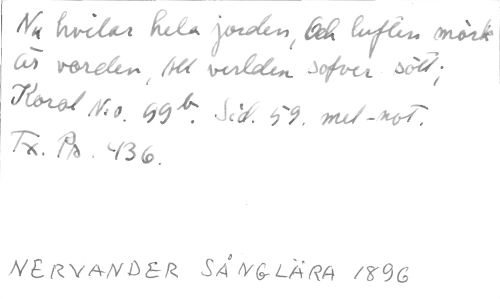 Nu hvilar hela jorden, Och luften mörk
är vorden, All verlden sofver sött;
Koral N:o. 99b. Sid. 59. mel-not.
Tx. Ps. 436.
NERVANDER SÅNGLÄRA 1896